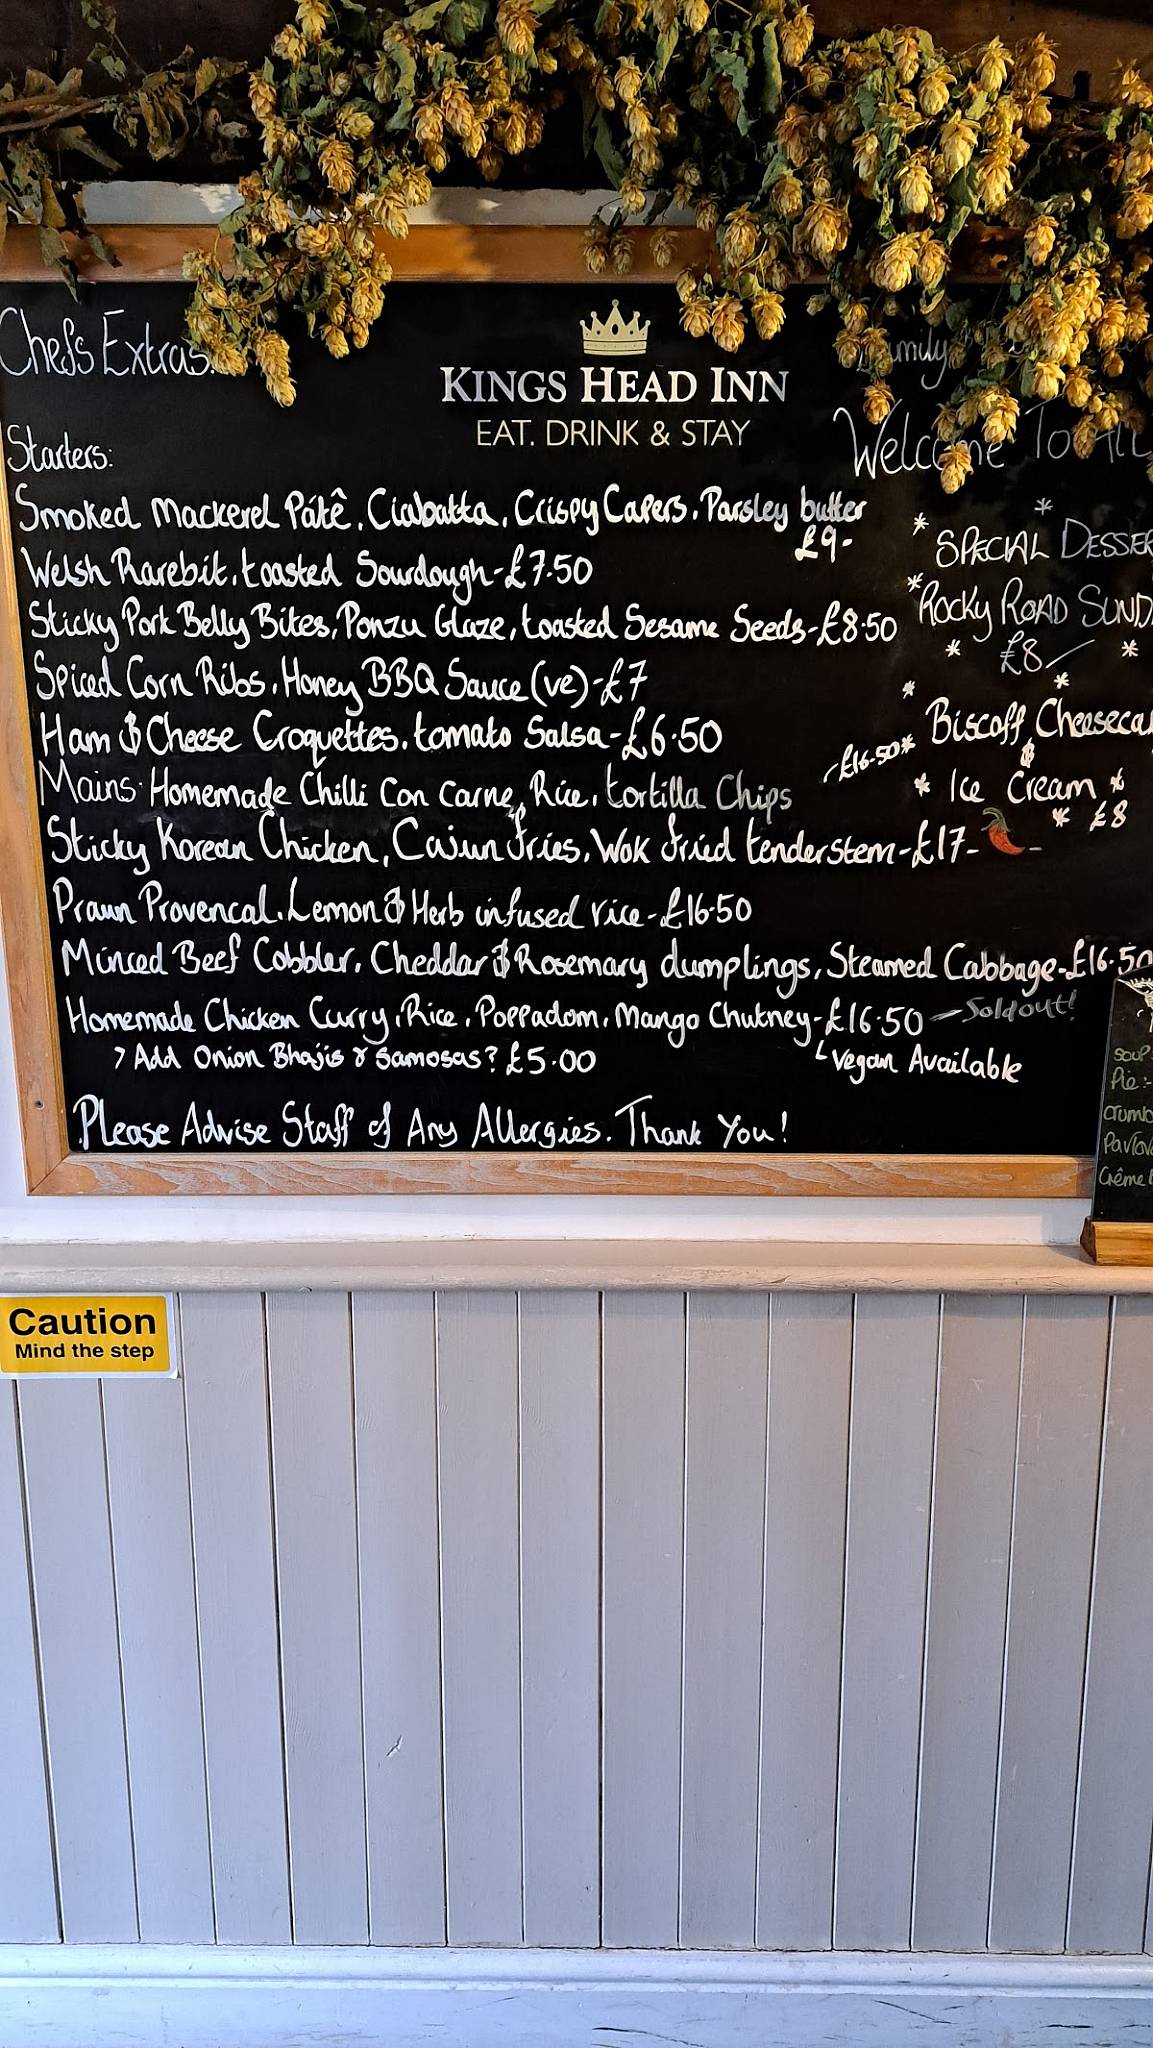 Chefs Extras:
KINGS HEAD INN
EAT. DRINK & STAY
Starters:
Smoked Mackerel Pátê, Ciabatta, Crispy Capers, Parsley butter
£9-
Welsh Rarebit, toasted Sourdough-£7.50
Sticky Pork Belly Bites, Ponzu Glaze, toasted Sesame Seeds-£8.50
Spiced Corn Ribs, Honey BBQ Sauce (ve)-£7
Ham & Cheese Croquettes, tomato Salsa-£6.50
Mains: Homemade Chilli Con Carne, Rice, tortilla Chips -£16.50
Sticky Korean Chicken, Cajun Fries, Wok fried tenderstem-£17-
Prawn Provencal, Lemon & Herb infused rice-£16.50
Minced Beef Cobbler, Cheddar & Rosemary dumplings, Steamed Cabbage-£16.50
Homemade Chicken Curry, Rice, Poppadom, Mango Chutney-£16.50 - Sold out!
> Add Onion Bhajis & Samosas? £5.00
Vegan Available
Please Advise Staff of Any Allergies. Thank You!
Welcome To All
* SPECIAL DESSER
* ROCKY ROAD SUND
* £8 *
* Biscoff Cheeseca
&
* Ice Cream *
* £8
soup
Pie:-
crumb
Pavlov
Crême
Caution
Mind the step